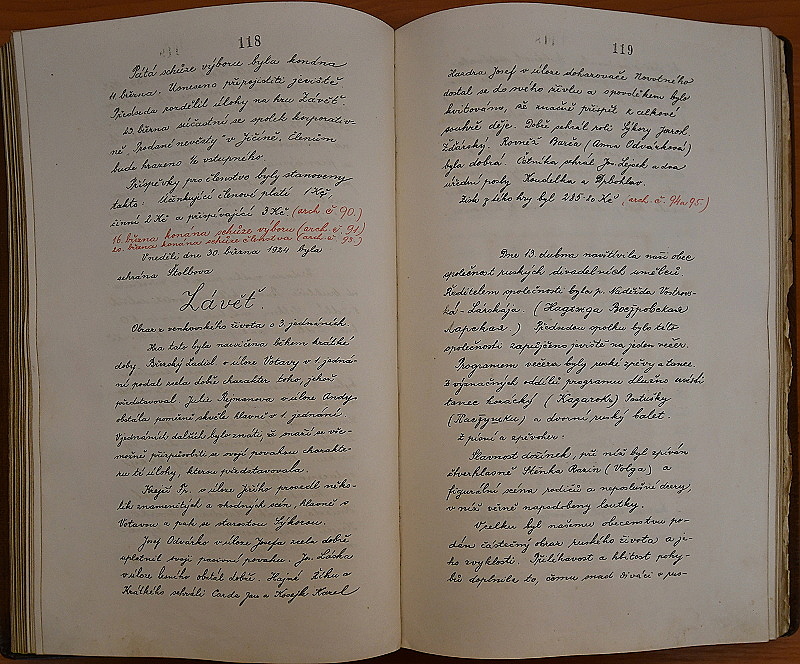 118
Pátá schůze výboru byla konána
11. března. Usneseno přizpůsobiti jeviště
Předseda rozdělil úlohy na hru Závěť.
23. března súčastní se spolek korporativ-
ně "Prodané nevěsty" v Jičíně. Členům
bude hrazeno ½ vstupného.
Příspěvky pro členstvo byly stanoveny
takto: Účinkující členové platí 1 Kč,
činní 2 Kč a přispívající 3 Kč. (arch. č. 90.)
16. března konána schůze výboru (arch. č. 91.)
20. března konána schůze členstva (arch. č. 93.)
V neděli dne 30. března 1924 byla
sehrána Štolbova
Závěť.
Obraz z venkovského života o 3 jednáních.
Hra tato byla nacvičena během krátké
doby. Ladisl. v úloze Votavy v 1. jedná-
ní podal zcela dobře charakter toho, jehož
představoval. Julie Rejmanova v úloze
obstála poměrně skvěle hlavně v 1 jednání.
V jednáních dalších bylo znáti, že snaží se vše-
možně přizpůsobiti se svojí povahou charakte-
ru té úlohy, kterou představovala.
Krejčí Fr. v úloze Jiřího provedl něko-
lik znamenitých a vhodných scén, hlavně s
Votavou a pak se starostou Sýkorou.
Josef Odvárko v úloze Josefa zcela dobře
uplatnil svoji pasivní povahu. Jar. Láska
v úloze lesního obstál dobře. Hajné Žiku a
Krátkého sehráli Čarda Jan a Karel
119
Hazdra Josef v úloze Novotného
dostal se do svého živlu a spovděkem bylo
kvitováno, že značně přispěl k celkové
souhře děje. Dobře sehrál roli Sýkory Jarosl.
Žďárský. Rovněž Bára (Anna Odvárková)
byla dobrá. Četníka sehrál Jos. Lejsek a dva
úřední posly Koudelka a
Zisk z této hry byl 285·20 Kč (arch. č. 94 a 95.)
Dne 13. dubna navštívila naši obec
společnost ruských divadelních umělců.
Ředitelem společnosti byla p. Naděžda Vostrov-
ská - Larskaja. (
) Předsedou spolku bylo této
společnosti zapůjčeno jeviště na jeden večer.
Programem večera byly ruské zpěvy a tance.
Z význačných oddílů programu dlužno uvésti
tanec kozácký ( ) Častušky
( ) a dvorní ruský balet.
Z písní a zpěvoher:
Slavnost dožínek, při níž byl zpíván
čtverhlasně Stěnka Razin (Volga) a
figurální scéna rodičů a neposlušné dcery,
v níž věrně napodobeny loutky.
Vcelku byl našemu obecenstvu po-
dán částečný obraz ruského života a je-
ho zvyklostí. Přiléhavost a hbitost pohy-
bů doplnila to, čemu snad diváci v rus-